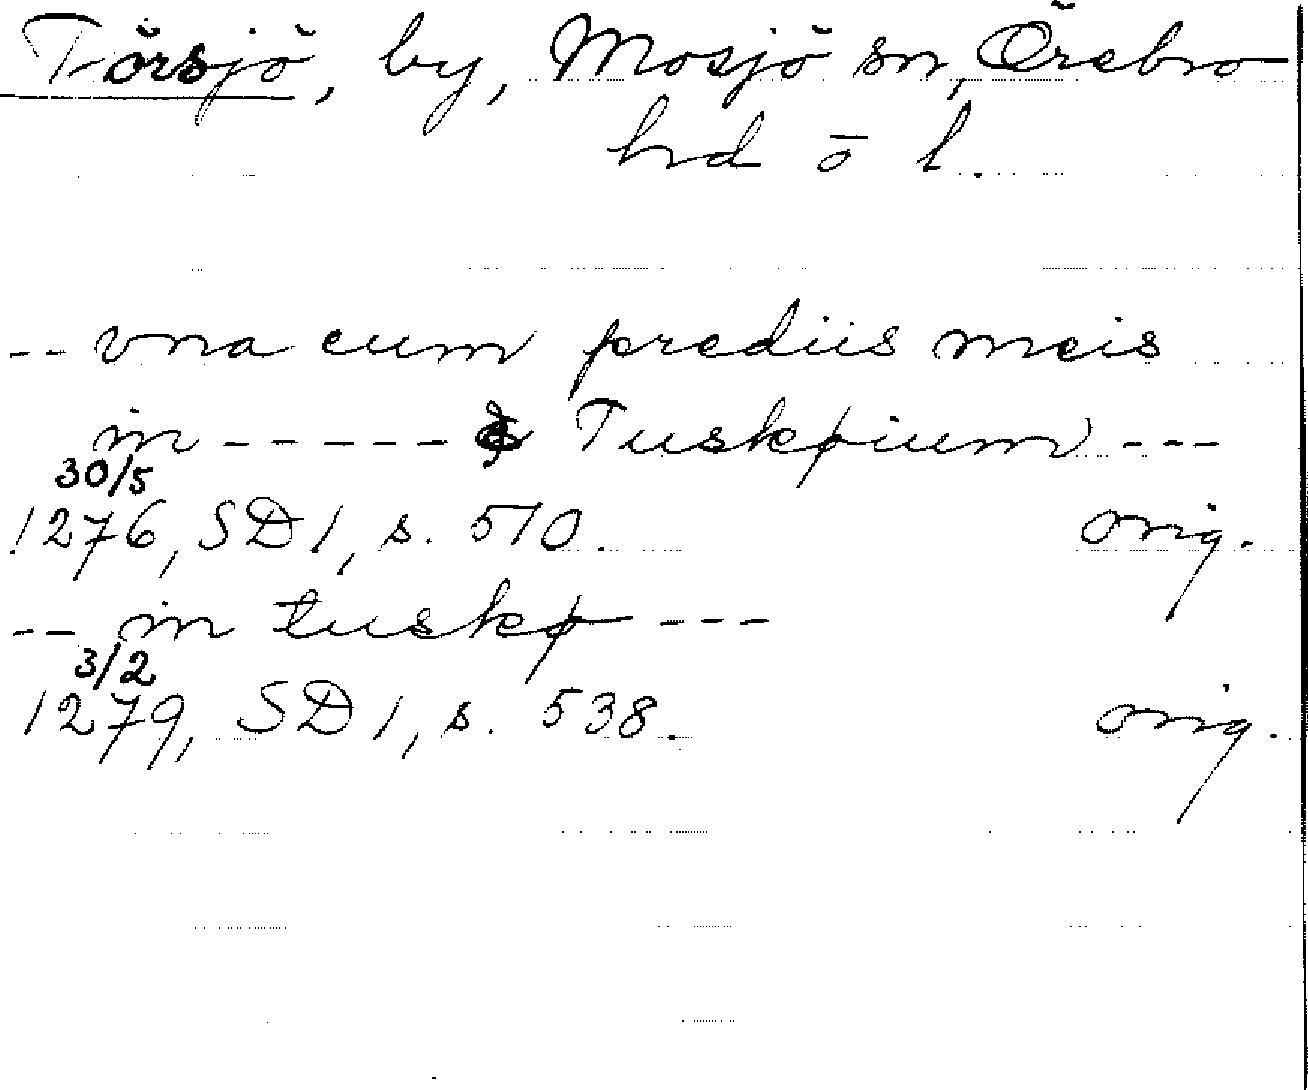 Törsjö, by, Mosjö sn, Örebro
hd o l.
-- vna cum prediis meis
in ------ Tuskøium ---
30/5
1276, SD 1, s. 510. orig.
-- in tuskø ---
3/2
1279, SD 1, s. 538. orig.